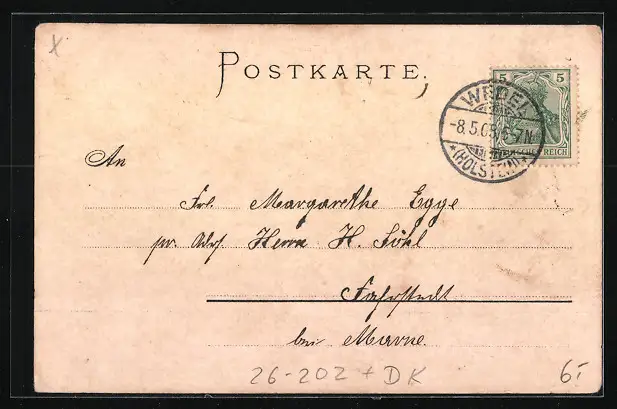 x
POSTKARTE.
5 5
WEDEL
-8.5.05. 6-7N.
*(HOLSTEIN)*
DEUTSCHES REICH
An
Frl. Margarethe Egge
pr. Adr. Herrn H. Söhl
Fahrstedt
bei Marne.
26-202 + DK
6,-